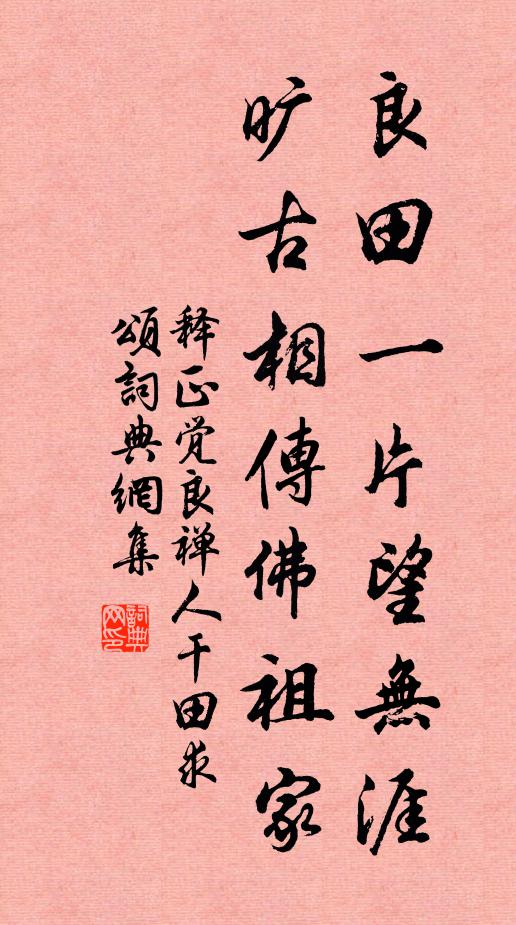 良田一片望無涯
曠古相傳佛祖家
释正觉良禅人干田求
頌詞典網集
詞典网印